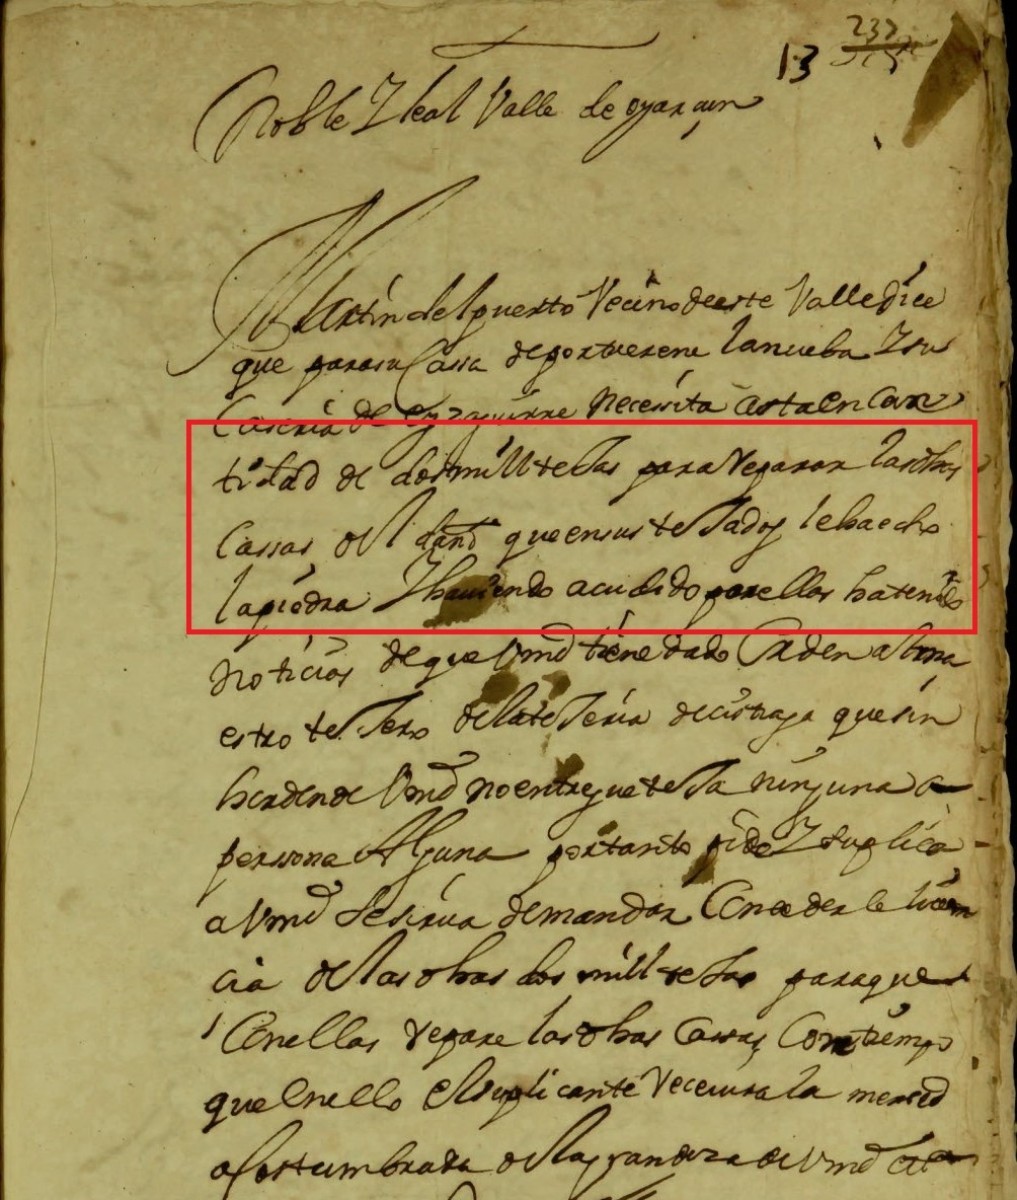 13 232
Noble Y leal Valle de oyarçun
Martin del puerto Vecino de este Valle dice
que para su Cassa de portu erene la nueba Y su
Caseria de eyzaguirre Necessita asta en can
tidad de dos mill texas para reparar las dhas
Cassas del daño que en sus texados le ha echo
la piedra Y haviendo acudido por ellas ha tenido
noticias de que Vmd tiene dado orden al ma
estro texero de la texeria de que sin
horden de Vmd no entregue texa ninguna a
persona Alguna por tanto pide Y suplica
a Vmd se sirva de mandar Conceder le licen
cia de las dhas dos mill texas para que
Con ellas repare las dhas Cassas Con tiempo
que En ello El suplicante recevira la merced
acostumbrada de la grandeza de Vmd